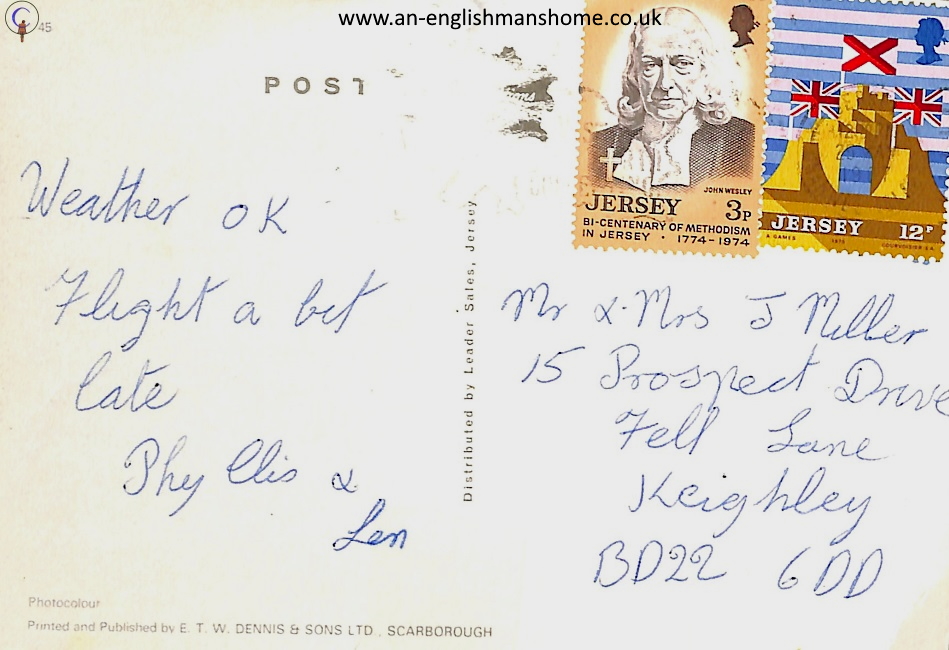 www.an-englishmanshome.co.uk
45
POST
Weather OK
Flight a bit
late
Phyllis &
Len
Photocolour
Printed and Published by E. T. W. DENNIS & SONS LTD., SCARBOROUGH
Distributed by Leader Sales, Jersey
JOHN WESLEY
JERSEY 3P
BI-CENTENARY OF METHODISM
IN JERSEY · 1774-1974
JERSEY 12P
A GAMES 1975 COURVOISIER S.A.
Mr & Mrs J Miller
15 Prospect Drive
Fell Lane
Keighley
BD22 6DD